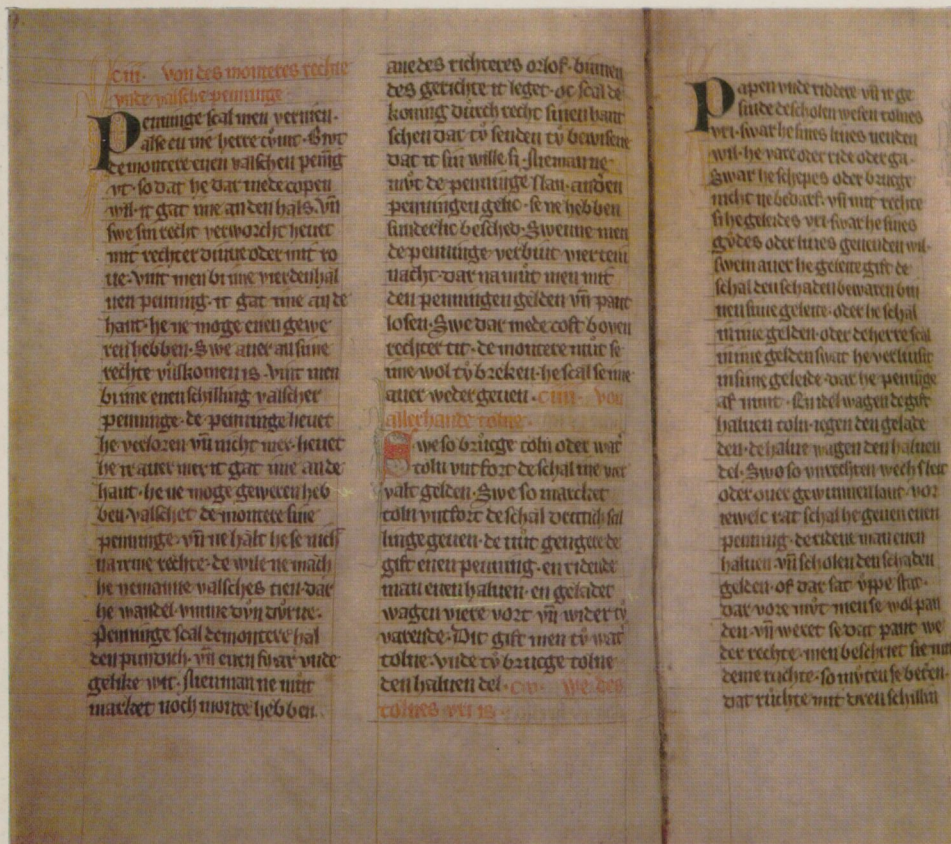 ciii· von des monteres rechte
vnde valsche penninge·
Penninge scal men vernien·
alse en nie herre cůmt· Givt
de montere enen valschen pēnīg
vt· so dat he dar mede copen
wil· it gat ime an den hals· vn̄
swe sin recht verworcht hevet
mit rechter duue oder mit ro
ue· vint men bi ime vierdenhal
uen penning· it gat ime an de
hant· he ne moge enen gewe
ren hebben· Swe auer an sime
rechte vulskomen is· vint men
bi ime enen schilling valscher
penninge· de penninge hevet
he verloren vn̄ nicht mer· hevet
he is auer mer it gat ime an de
hant· he ne moge geweren heb
ben· valschet de montere sine
penninge· vn̄ ne halt he se nich
na rechte· de wile ne mach
he nemanne valsches tien· dar
he wandel vmme
Penninge scal de montere hal
den pundich· vn̄ euen swar vnde
gelike wit· Nieman ne můt
market noch monte hebben
ane des richteres orlof· binnen
des gerichte it leget· oc scal de
koning dürch recht sinen hant
schen dar tů senden tů bewisene
dat it sin wille si· Nieman ne
můt de penninge slan· anderen
penningen gelic· se ne hebben
sunderlic besched· Swenne men
de penninge verbiut viertein
nacht· dar na můt men mit
den penningen gelden vn̄ pant
losen· Swe dar mede coft boven
rechter tit· de montere můt se
ime wol tů breken· he scal se ime
auer weder geuen· ciiii· von
allerhande tolne·
Swe so brůcge toln oder wat
toln vntfort de schal ine vier
valt gelden· Swe so marcket
toln vntfort de schal dertich scil
linge geuen· de můt gengere de
gift enen penning· en ridende
man enen haluen· en geladet
wagen viere vort vn̄ wider tů
varende· Dit gift men tů wat
tolne· vnde tů brůcge tolne
den haluen del· cv· We des
tolnes vri is·
Papen vnde riddere vn̄ it ge
sinde de scholen wesen tolnes
vri· swar he sines liues nenden
wil· he vare oder ride oder ga·
Swar he schepes oder brůcge
nicht ne bedarf· vn̄ mit rechte
si he geleides vri· swar he sines
gůdes oder liues genenden wil·
swem auer he geleite gift de
schal den schaden bewaren bin
nen sime geleite· oder he schal
in ime gelden· oder de herre scal
in ime gelden swat he verliusit
in sime geleide· dar he penninge
af nimt· en idel wagen de gift
haluen toln· iegen den gelade
den· de halue wagen den haluen
del· Swo so vnrechten wech sleit
oder ouer gewunnen lant· vor
iewelc rat schal he geuen enen
penning· de ridene man enen
haluen· vn̄ scholen den schaden
gelden· of dar sat ůppe stat·
dar vore můt men se wol pan
den· vn̄ weret se dat pant we
der rechte· men beschriet sie mit
deme růchte· so můten se beten·
dat růchte mit dren schillin